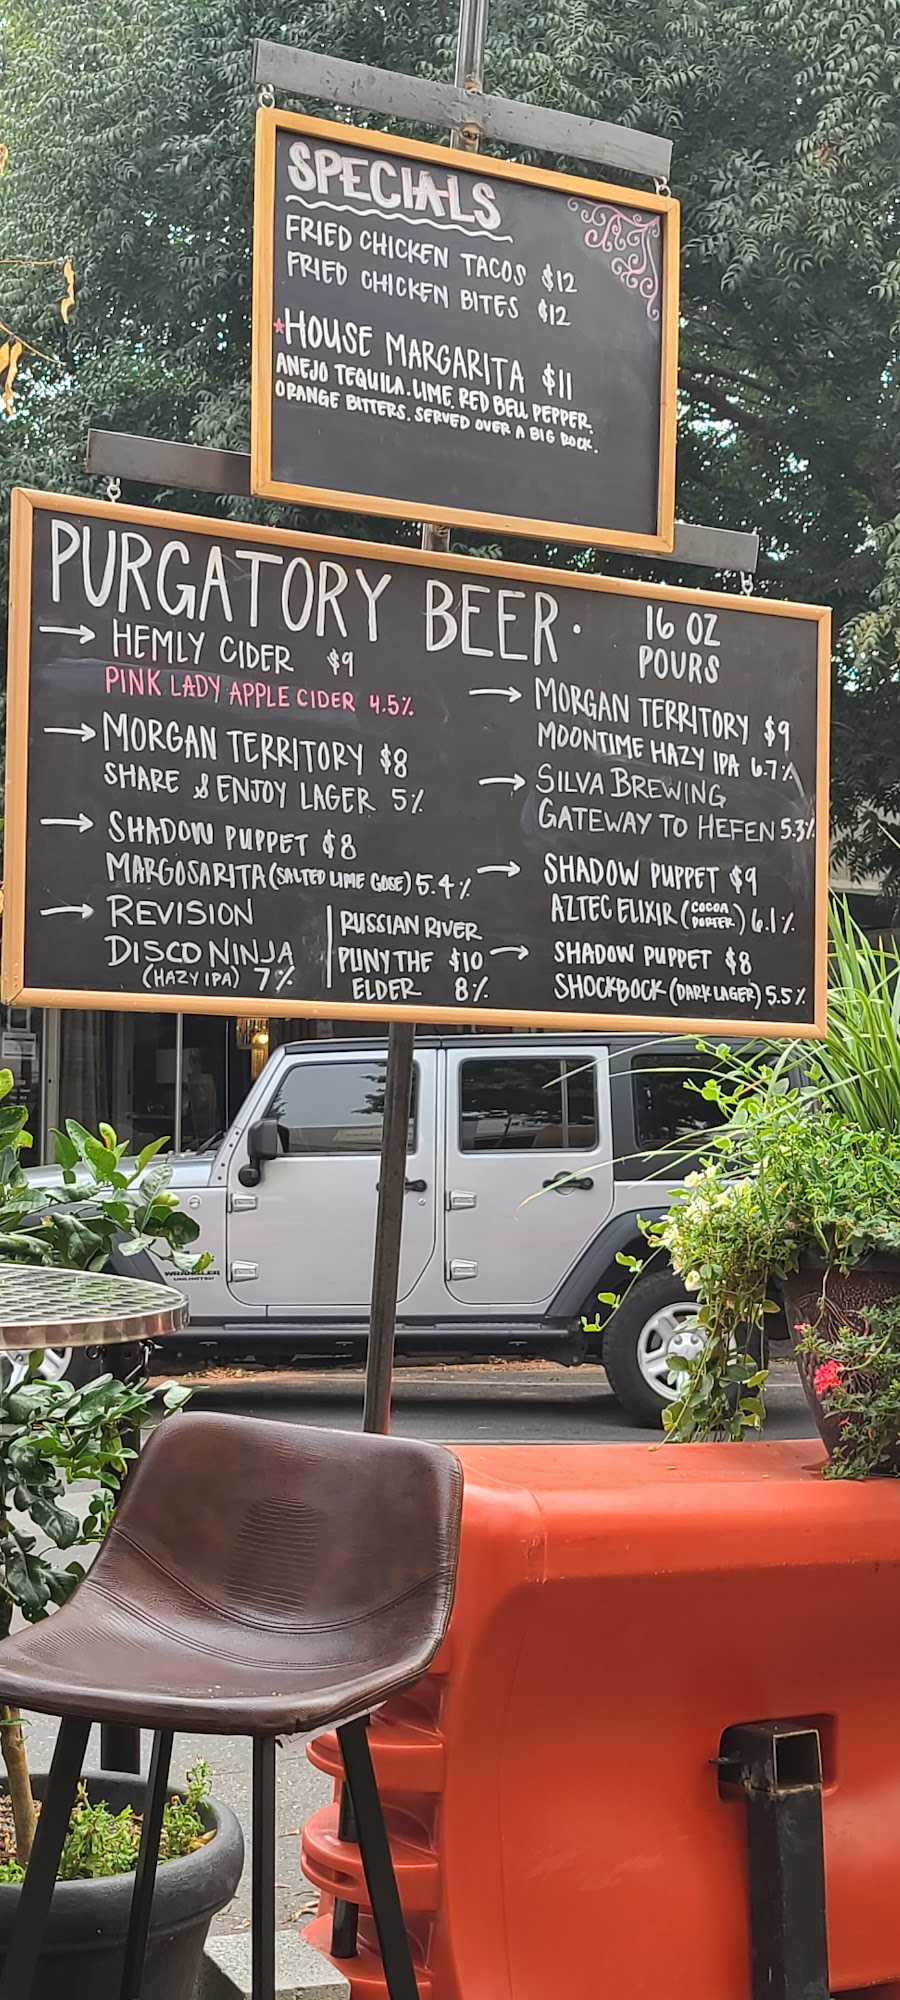 SPECIALS
FRIED CHICKEN TACOS $12
FRIED CHICKEN BITES $12
*HOUSE MARGARITA $11
ANEJO TEQUILA. LIME. RED BELL PEPPER.
ORANGE BITTERS. SERVED OVER A BIG ROCK.
PURGATORY BEER.
16 OZ
POURS
→ HEMLY CIDER $9
PINK LADY APPLE CIDER 4.5%
→ MORGAN TERRITORY $8
SHARE & ENJOY LAGER 5%
→ SHADOW PUPPET $8
MARGOSARITA (SALTED LIME GOSE) 5.4%
→ REVISION
DISCO NINJA
(HAZY IPA) 7%
RUSSIAN RIVER
PLINY THE $10
ELDER 8%
→ MORGAN TERRITORY $9
MOONTIME HAZY IPA 6.7%
→ SILVA BREWING
GATEWAY TO HEFEN 5.3%
→ SHADOW PUPPET $9
AZTEC ELIXIR (COCOA PORTER) 6.1%
→ SHADOW PUPPET $8
SHOCKBOCK (DARK LAGER) 5.5%
WRANGLER